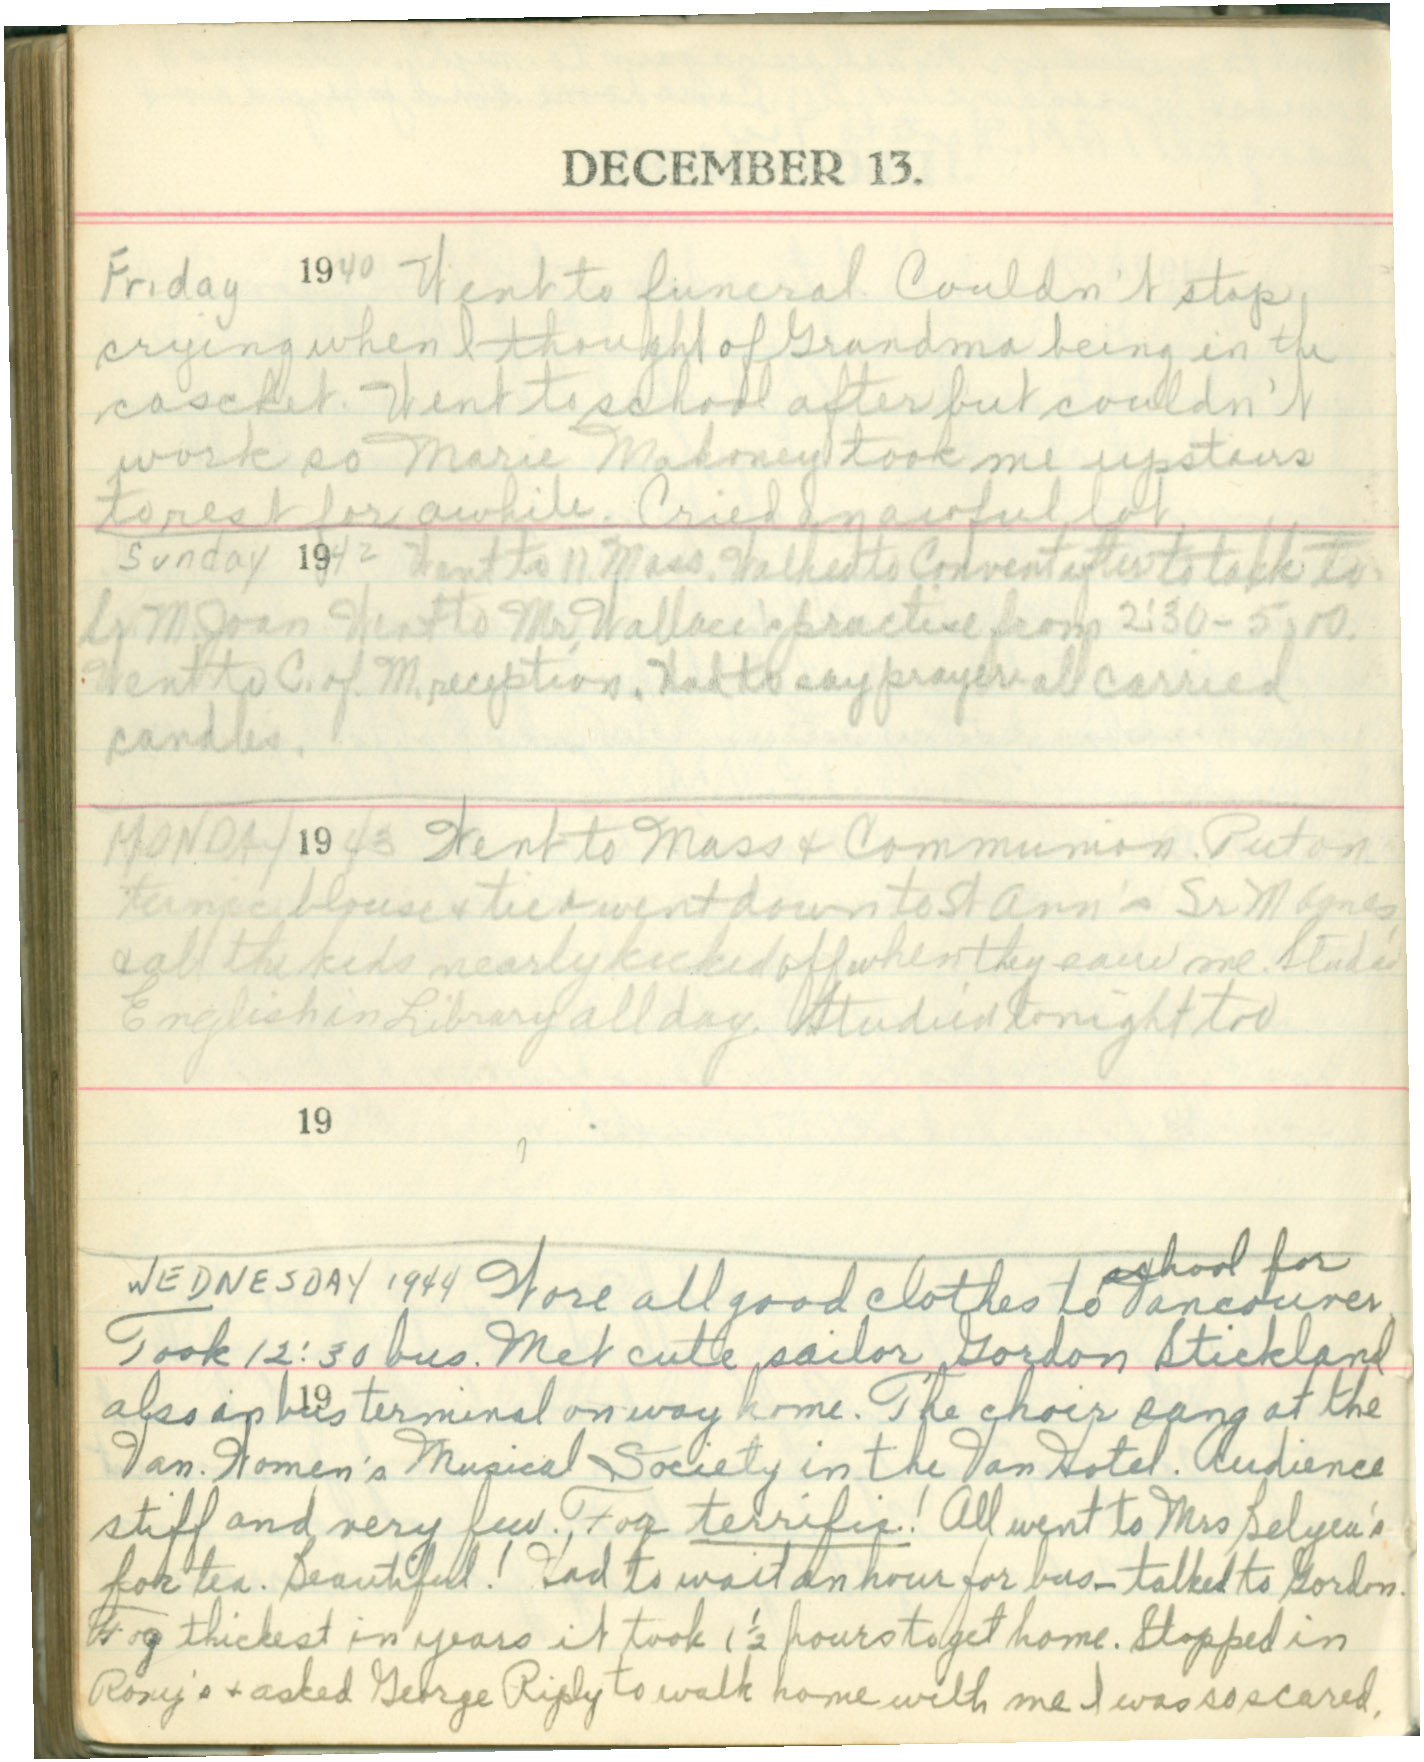 DECEMBER 13.
Friday 1940 Went to funeral. Couldn't stop
crying when I thought of Grandma being in the
cascket. Went to school after but couldn't
work so Marie Mahoney took me upstairs
to rest for awhile. Cried an awful lot.
Sunday 1942 Went to 11 Mass. Walked to Convent after to talk to
Sr. M. Joan. Went to Mr. Wallace's practise from 2:30 - 5:00.
Went to C. of M. reception. Had to say prayer all carried
candles.
MONDAY 1943 Went to Mass & Communion. Put on
tunic blouse & tie & went down to St Ann's Sr M Agnes
& all the kids nearly kicked off when they saw me. Studied
English in Library all day. Studied tonight too
19
school for
WEDNESDAY 1944 Wore all good clothes to Vancouver.
Took 12:30 bus. Met cute sailor Gordon Stickland
19
also in bus terminal on way home. The choir sang at the
Van. Women's Musical Society in the Van Hotel. Audience
stiff and very few. Fog terrific! All went to Mrs Belyea's
for tea. Beautiful! Had to wait an hour for bus - talked to Gordon.
Fog thickest in years it took 1½ hours to get home. Stopped in
Rony's & asked George Riply to walk home with me I was so scared.